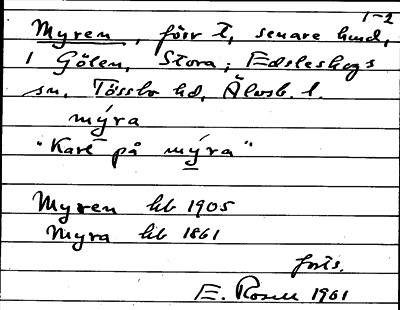 1-2
Myren, förr t, senare hmd,
i Gölen, Stora; Edsleskogs
sn, Tössbo hd, Älvsb. l.
mýra
"Karl på mýra"
Myren kb 1905
Myra kb 1861
forts.
E. Rosell 1961